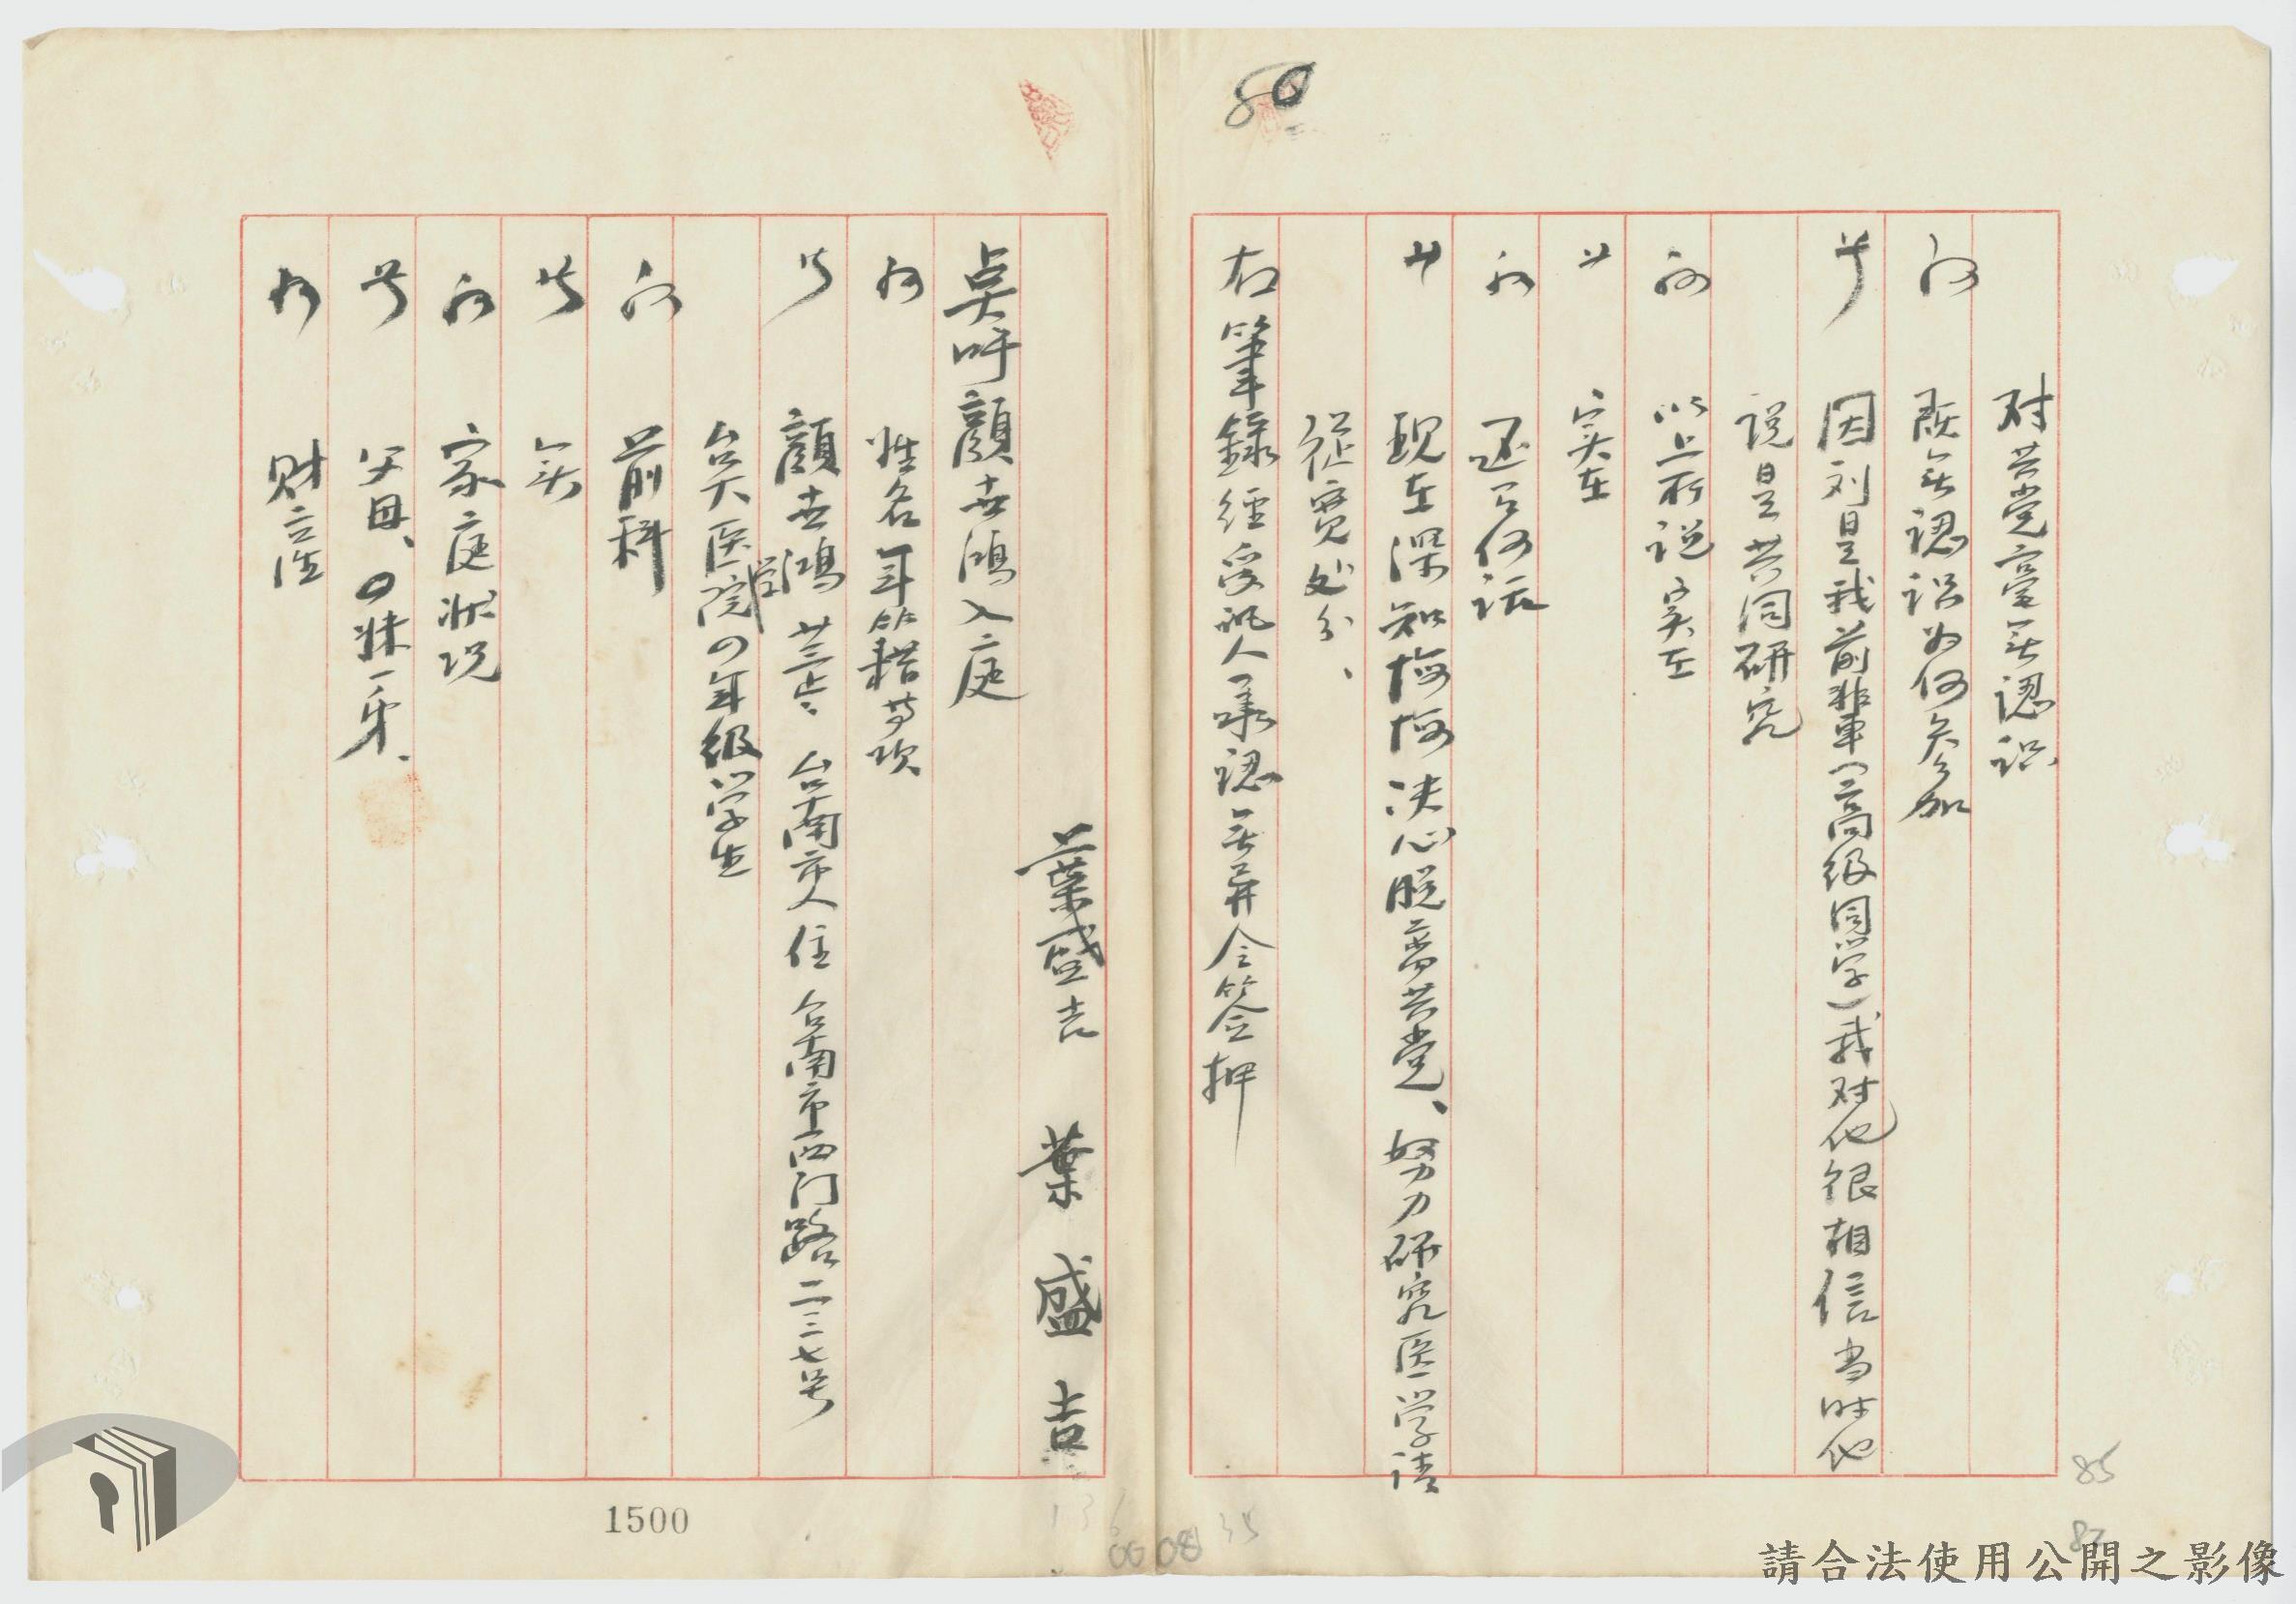 80
对共党毫无認识
问 既无認识为何参加
答 因刘是我前輩(高级同学)我对他很相信当时他
说是共同研究
问 以上所说实在
答 实在
问 还有何话
答 现在深知悔悔决心脱离共党、努力研究医学请
从寬处分、
右筆錄経受訊人承認无异令签押
葉盛吉 葉盛吉
点呼顔世鴻入庭
问 姓名年籍等项
答 顔世鴻 廿三 台南市人住台南市西门路二三七号
台大医学院4年级学生
问 前科
答 无
问 家庭状况
答 父母、4妹一弟、
问 财产
1500
85
請合法使用公開之影像